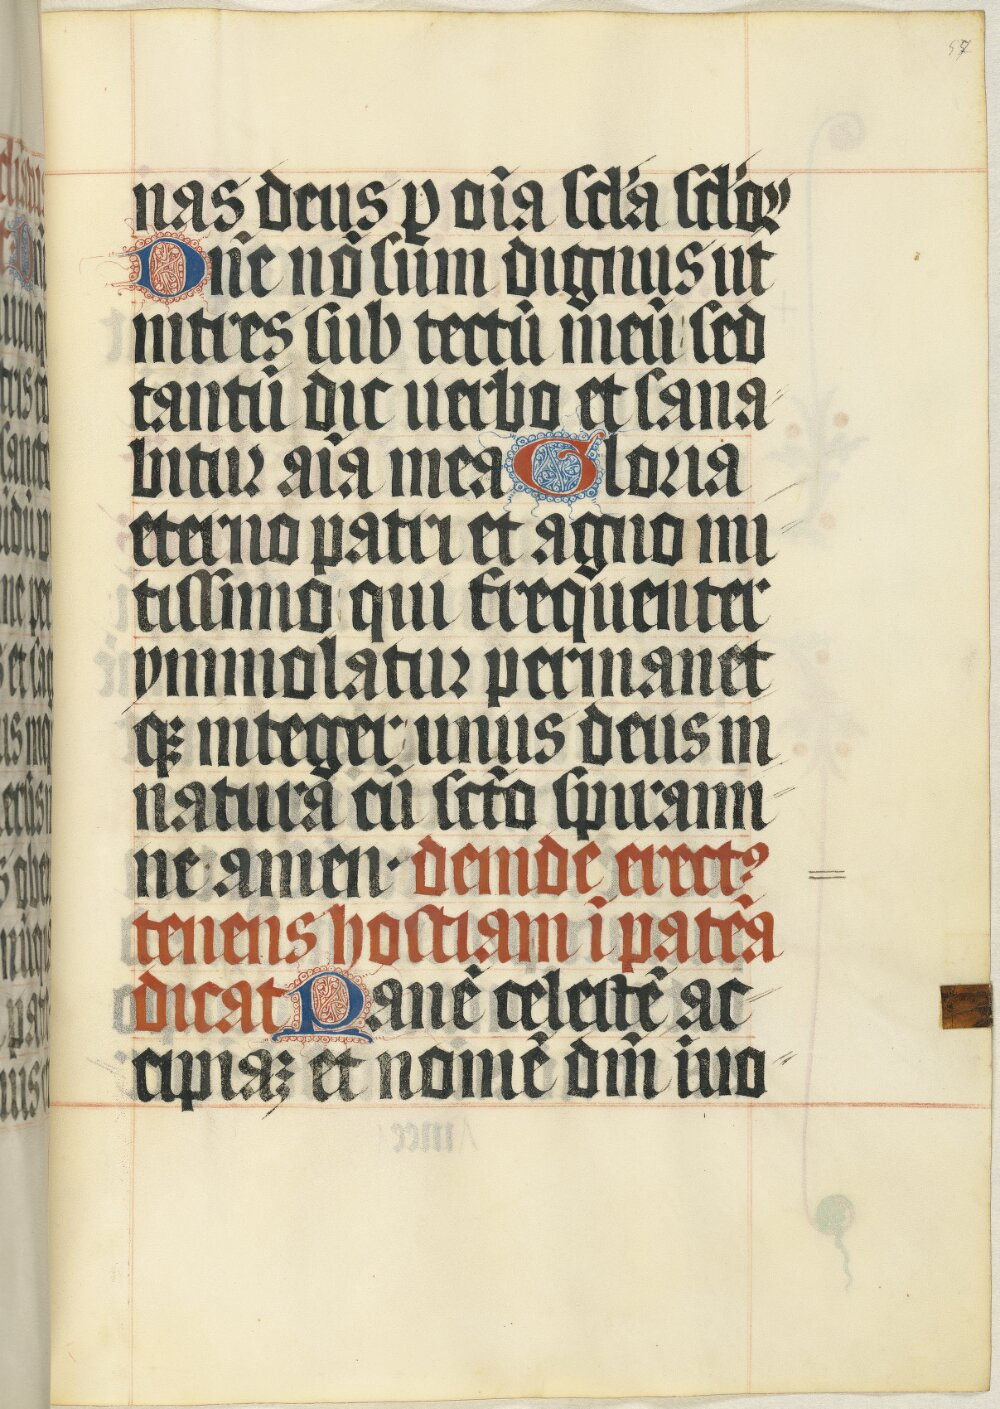 57
nas deus ꝑ oı̄a scl'a scl'oꝝ
Dn̄e nō sum dignus ut
intres sub tectū meū sed
tantū dic uerbo et sana⸗
bitur aı̄a mea Gloria
eterno patri et agno mi⸗
tissimo qui frequenter
ymmolatur permanet
qꝫ integer unus deus in
natura cū sctō spirami⸗
ne amen· deinde erectꝰ
tenens hostiam ī patēa
dicat Panē celestē ac⸗
cipiaꝫ et nomē dn̄i iuo⸗